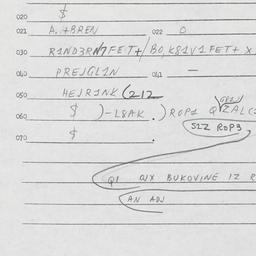 020 $
021 A.+BREN 022 0
030 R1ND3RN7FET+/BO,KS1V1FET+X
040 PREJGL1N 041 —
050 HEJR1NK (212
060 $ )-L8AK.) ROP1
$1Z ROP3
070 $
Q1 BUKOVINE 1Z R
AN ADJ